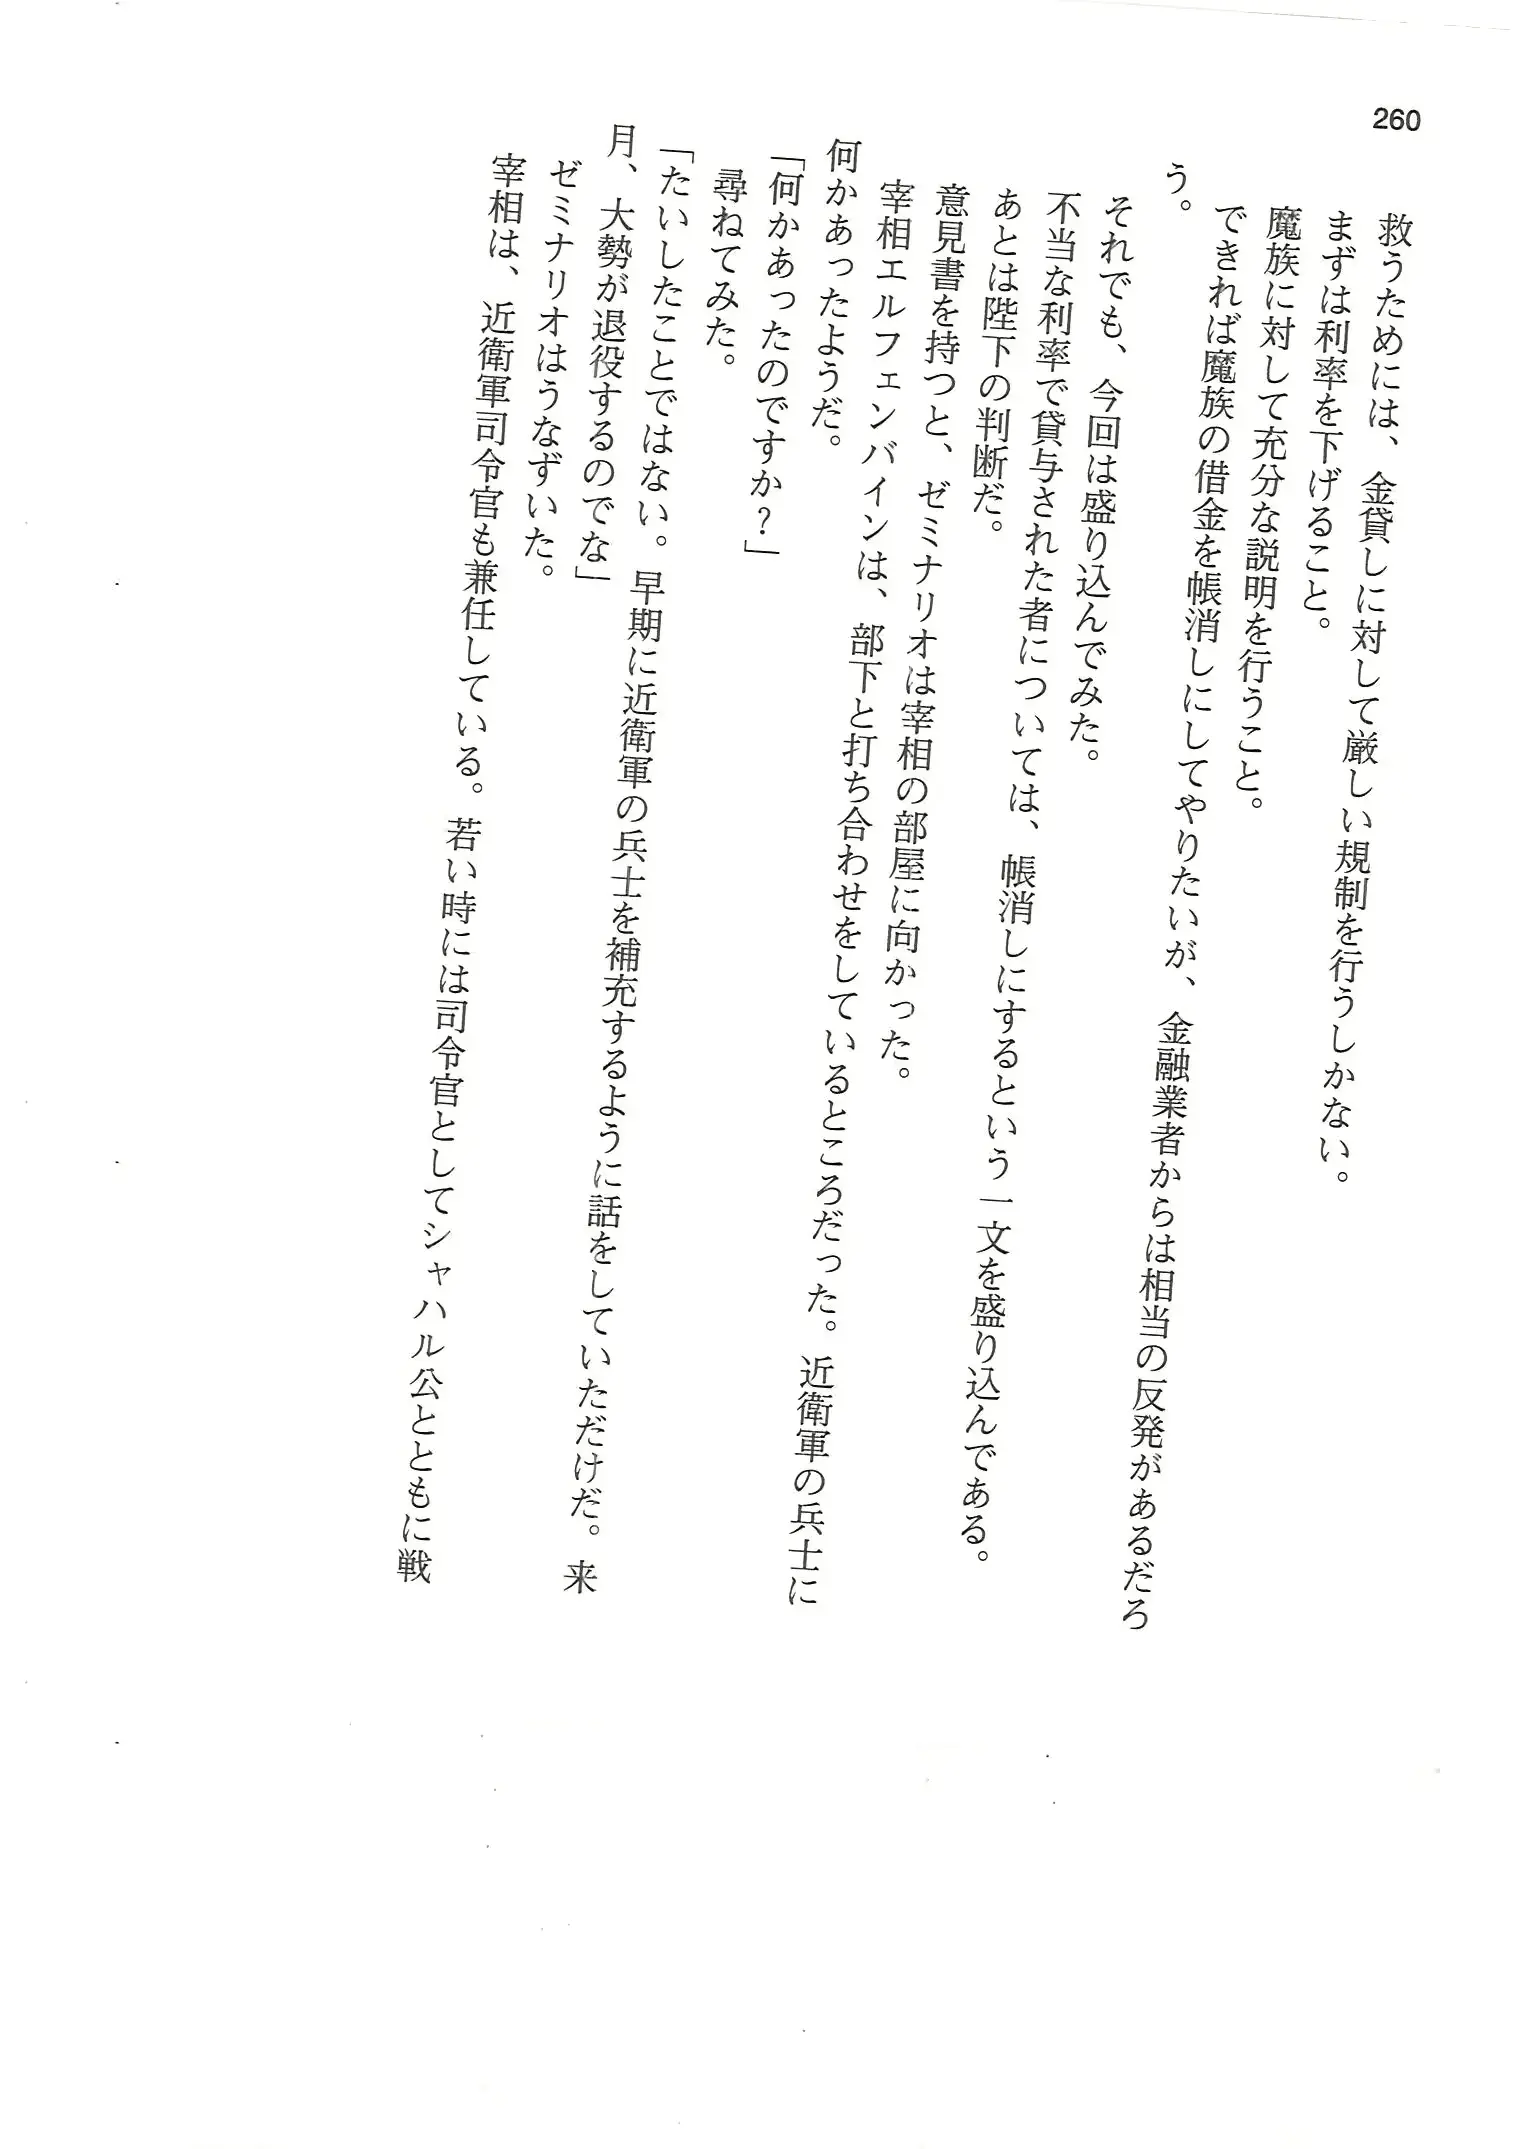 260
救うためには、金貸しに対して厳しい規制を行うしかない。
まずは利率を下げること。
魔族に対して充分な説明を行うこと。
できれば魔族の借金を帳消しにしてやりたいが、金融業者からは相当の反発があるだろ
う。
それでも、今回は盛り込んでみた。
不当な利率で貸与された者については、帳消しにするという一文を盛り込んである。
あとは陛下の判断だ。
意見書を持つと、ゼミナリオは宰相の部屋に向かった。
宰相エルフェンバインは、部下と打ち合わせをしているところだった。近衛軍の兵士に
何かあったようだ。
「何かあったのですか？」
尋ねてみた。
「たいしたことではない。早期に近衛軍の兵士を補充するように話をしていただけだ。来
月、大勢が退役するのでな」
ゼミナリオはうなずいた。
宰相は、近衛軍司令官も兼任している。若い時には司令官としてシャハル公とともに戦